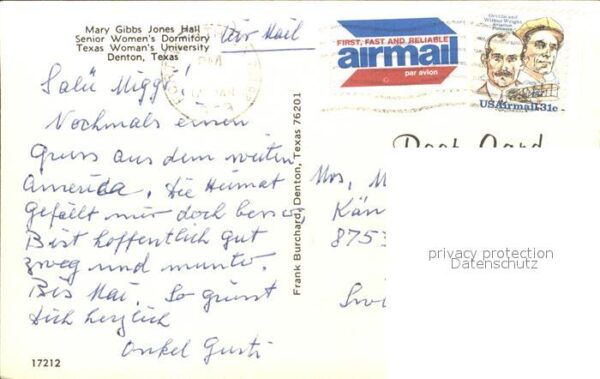 Mary Gibbs Jones Hall
Senior Women's Dormitory
Texas Woman's University
Denton, Texas
Air Mail
FIRST, FAST AND RELIABLE
airmail
par avion
Orville and
Wilbur Wright
Aviation
Pioneers
USAirmail 31c
Salü Miggi!
Nochmals einen
Gruss aus dem weiten
America. Die Heimat
gefällt mir doch besser
Bist hoffentlich gut
zweg und munter.
Bis Mai. So grüsst
Dich herzlich
Onkel Gusti
17212
Frank Burchard, Denton, Texas 76201
Post Card
Mrs, M
Kän
8753
Swi
privacy protection
Datenschutz